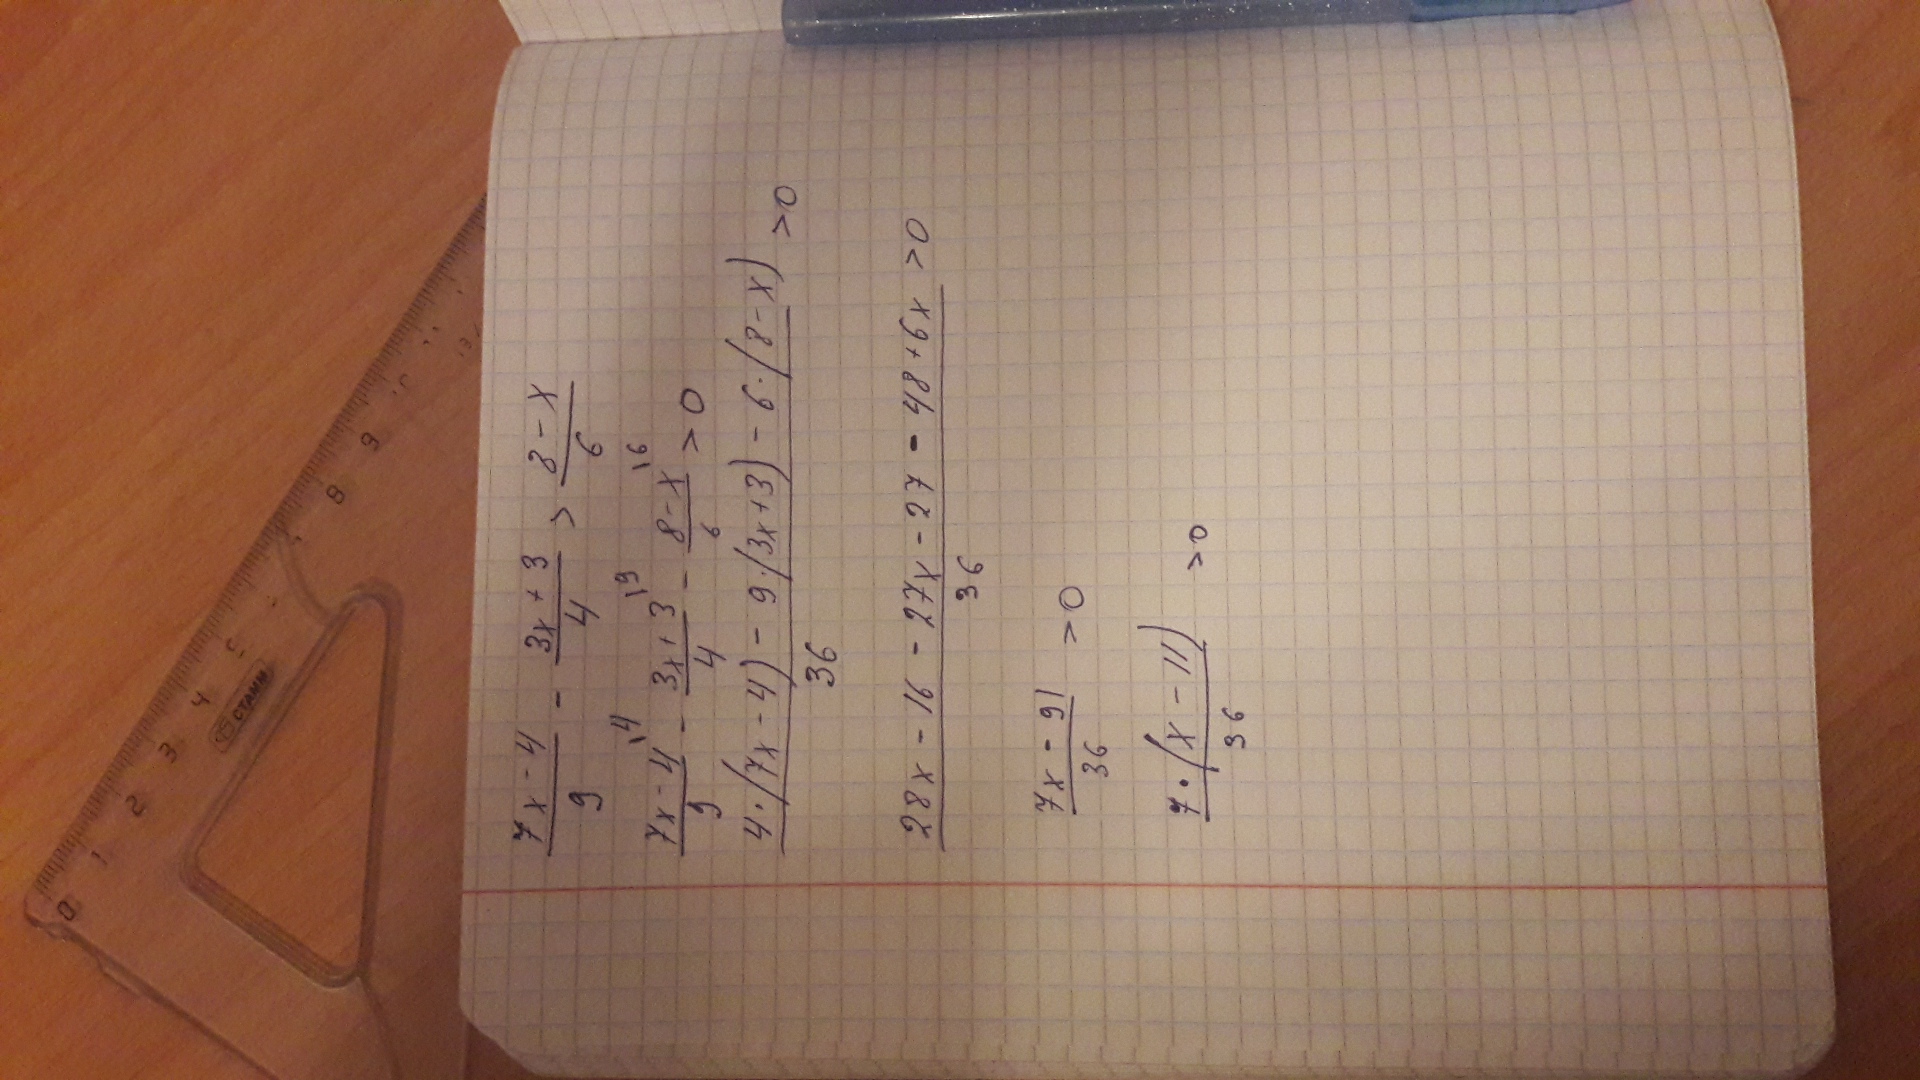 (7x-4)/9 - (3x+3)/4 > (8-x)/6
(7x-4)/9 \4 - (3x+3)/4 \9 - (8-x)/6 \6 > 0
(4·(7x-4) - 9·(3x+3) - 6·(8-x))/36 > 0
(28x - 16 - 27x - 27 - 48 + 6x)/36 > 0
(7x - 91)/36 > 0
(7·(x-11))/36 > 0
0 1 2 3 4 5 8 9
СТАММ